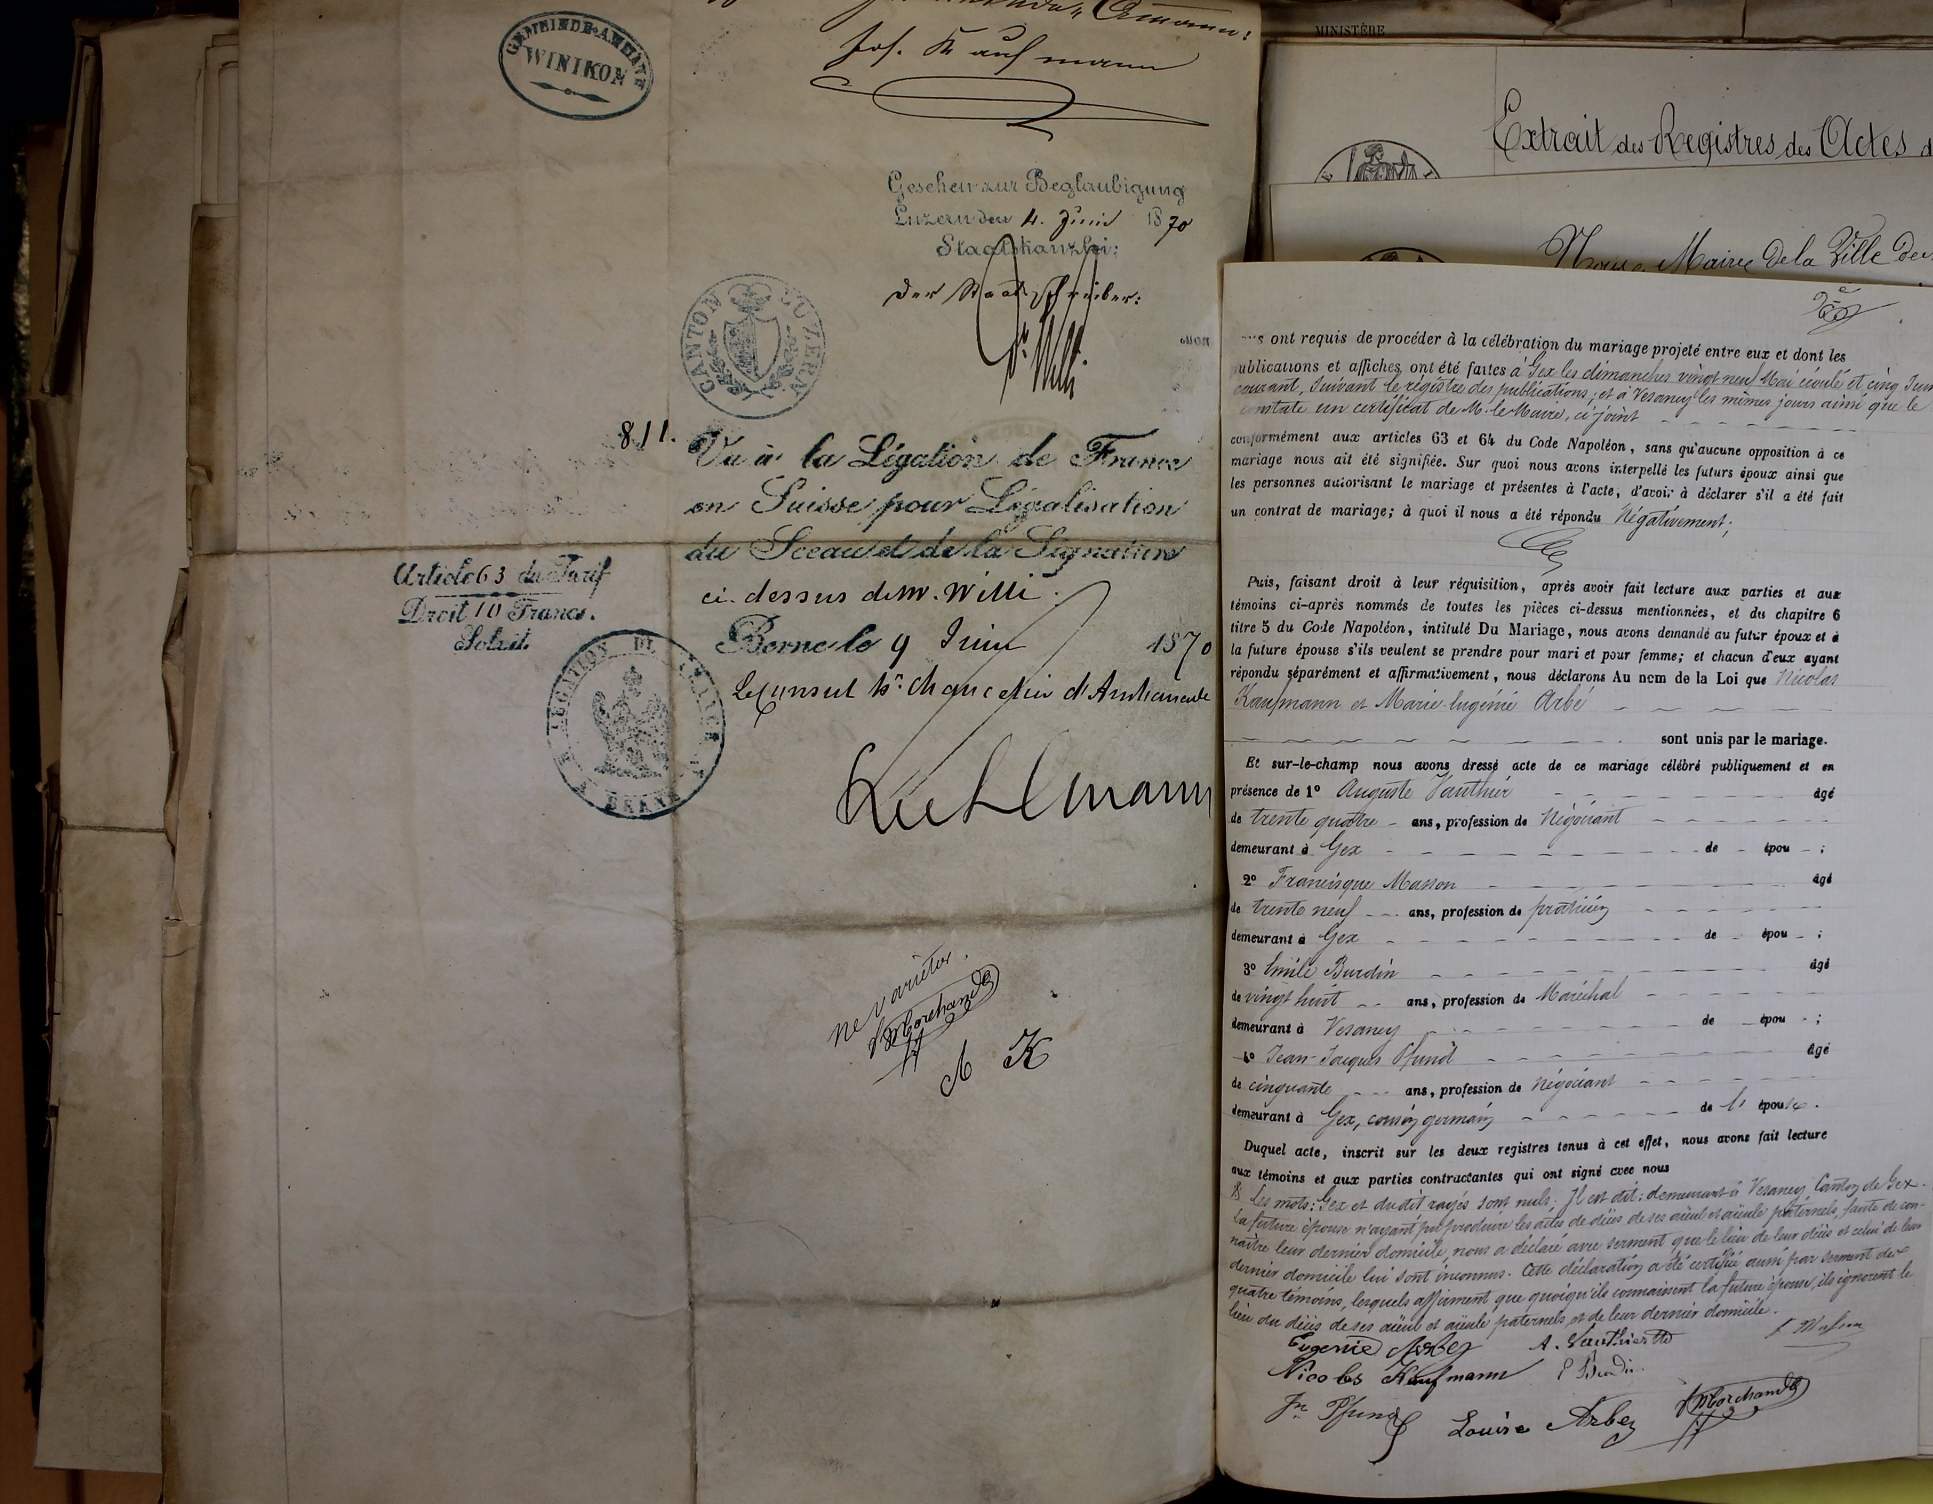 GEMEINDE-AMMANN
WINIKON
Jos. Kaufmann
Gesehen zur Beglaubigung
Luzern den 4. Juni 1870
Staatskanzlei:
Der Staatsschreiber:
Dr Willi
CANTON LUZERN
811.
Vu à la Légation de France
en Suisse pour Légalisation
du Sceau et de la Signature
ci-dessus de M. Willi.
Berne le 9 Juin 1870
Le Consul hre Chancelier d'Ambassade
Article 63 du Tarif
Droit 10 Francs.
Soloit.
LEGATION DE FRANCE
BERNE
ne varietur.
Marchand
K
MINISTÈRE
Extrait des Registres des Actes d
Nous Maire de la Ville de
ont requis de procéder à la célébration du mariage projeté entre eux et dont les
publications et affiches ont été faites à Gex les dimanches vingt neuf Mai écoulé et cinq Juin
courant, suivant le registre des publications, et à Vesancy les mêmes jours ainsi que le
constate un certificat de M. le Maire, ci-joint
conformément aux articles 63 et 64 du Code Napoléon, sans qu'aucune opposition à ce
mariage nous ait été signifiée. Sur quoi nous avons interpellé les futurs époux ainsi que
les personnes autorisant le mariage et présentes à l'acte, d'avoir à déclarer s'il a été fait
un contrat de mariage; à quoi il nous a été répondu Négativement;
Puis, faisant droit à leur réquisition, après avoir fait lecture aux parties et aux
témoins ci-après nommés de toutes les pièces ci-dessus mentionnées, et du chapitre 6
titre 5 du Code Napoléon, intitulé Du Mariage, nous avons demandé au futur époux et à
la future épouse s'ils veulent se prendre pour mari et pour femme; et chacun d'eux ayant
répondu séparément et affirmativement, nous déclarons Au nom de la Loi que Nicolas
Kaufmann et Marie-Eugénie Arbé
sont unis par le mariage.
Et sur-le-champ nous avons dressé acte de ce mariage célébré publiquement et en
présence de 1º Auguste Vauthier âgé
de trente quatre - ans, profession de Négociant
demeurant à Gex - de - épou - ;
2º Francisque Masson âgé
de trente neuf - ans, profession de praticien
demeurant à Gex - de - épou - ;
3º Emile Burdin âgé
de vingt huit - ans, profession de Maréchal
demeurant à Vesancy - de - épou - ;
4º Jean-Jacques Pfund âgé
de cinquante - ans, profession de Négociant
demeurant à Gex, cousin germain - de l' épouse.
Duquel acte, inscrit sur les deux registres tenus à cet effet, nous avons fait lecture
aux témoins et aux parties contractantes qui ont signé avec nous
Les mots: Gex et dudit rayés sont nuls; Il est dit: demeurant à Vesancy Canton de Gex.
La future épouse n'ayant pu produire les actes de décès de ses aïeul et aïeule paternels, faute de con-
naître leur dernier domicile, nous a déclaré avec serment que le lieu de leur décès et celui de leur
dernier domicile lui sont inconnus. Cette déclaration a été certifiée aussi par serment des
quatre témoins, lesquels affirment que quoiqu'ils connaissent la future épouse, ils ignorent le
lieu du décès de ses aïeul et aïeule paternels et de leur dernier domicile.
Eugenie Arbez A. Vauthier F. Masson
Nicolas Kaufmann E Burdin
Jn Pfund Louise Arbez Marchand